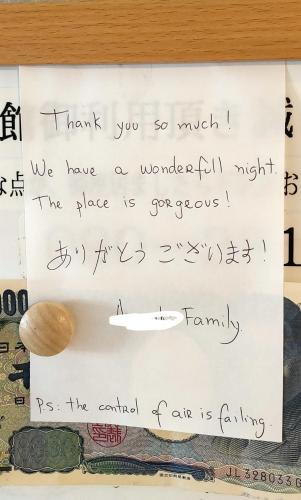 館
も項用料
な点
お
Thank you so much!
We have a wonderfull night.
The place is gorgeous!
ありがとうございます!
Family.
P.s: the control of air is failing.
JL328033G